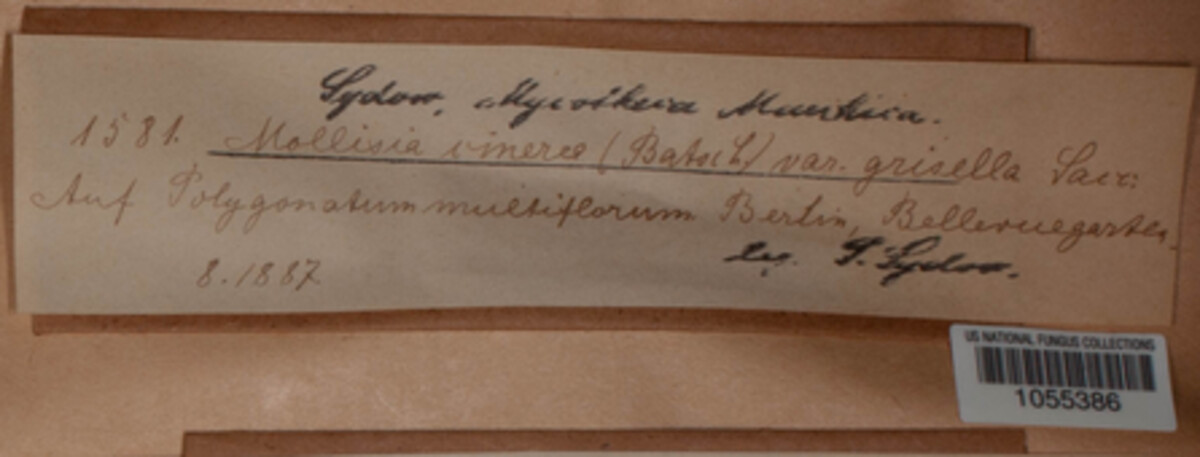 Sydow, Mycotheca Marchica.
1581. Mollisia cinerea (Batsch) var. grisella Sacc.
Auf Polygonatum multiflorum Berlin, Bellevuegarten.
leg. P. Sydow.
8.1887
US NATIONAL FUNGUS COLLECTIONS
1055386